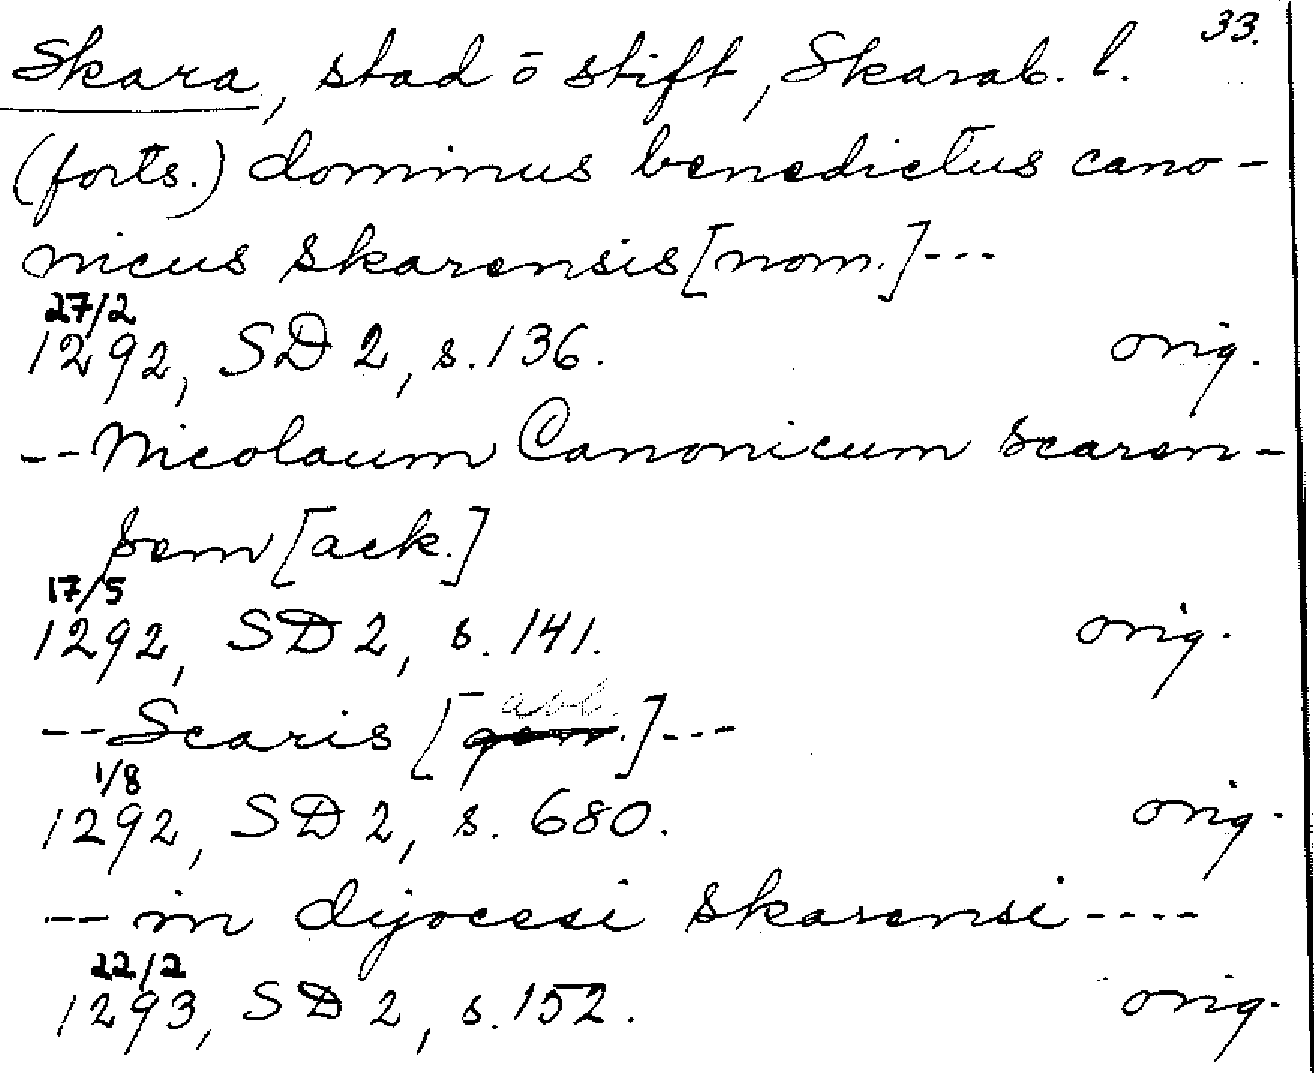 33.
Skara, stad ō stift, Skarab. l.
(forts.) dominus benedictus cano-
nicus skarensis [nom.]---
27/2
1292, SD 2, s. 136. orig.
--Nicolaum Canonicum scaren-
sem [ack.]
17/5
1292, SD 2, s. 141. orig.
abl.
--Scaris [gen.]---
1/8
1292, SD 2, s. 680. orig.
--in dijocesi skarensi----
22/2
1293, SD 2, s. 152. orig.